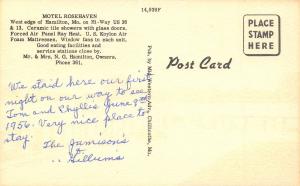 14,939F
MOTEL ROSEHAVEN
West edge of Hamilton, Mo. on Hi-Way US 36
& 13. Ceramic tile showers with glass doors,
Forced Air Panel Ray Heat. U. S. Koylon Air
Foam Mattresses. Window fans in each unit.
Good eating facilities and
service stations close by.
Mr. & Mrs. N. G. Hamilton, Owners,
Phone 361.
PLACE
STAMP
HERE
Post Card
Pub. by Adv., Chillicothe, Mo.
We staid here our first
night on our way to see
Tom and Phyllis June
1956. Very nice place to
stay.
The Jamison's
" Gillums